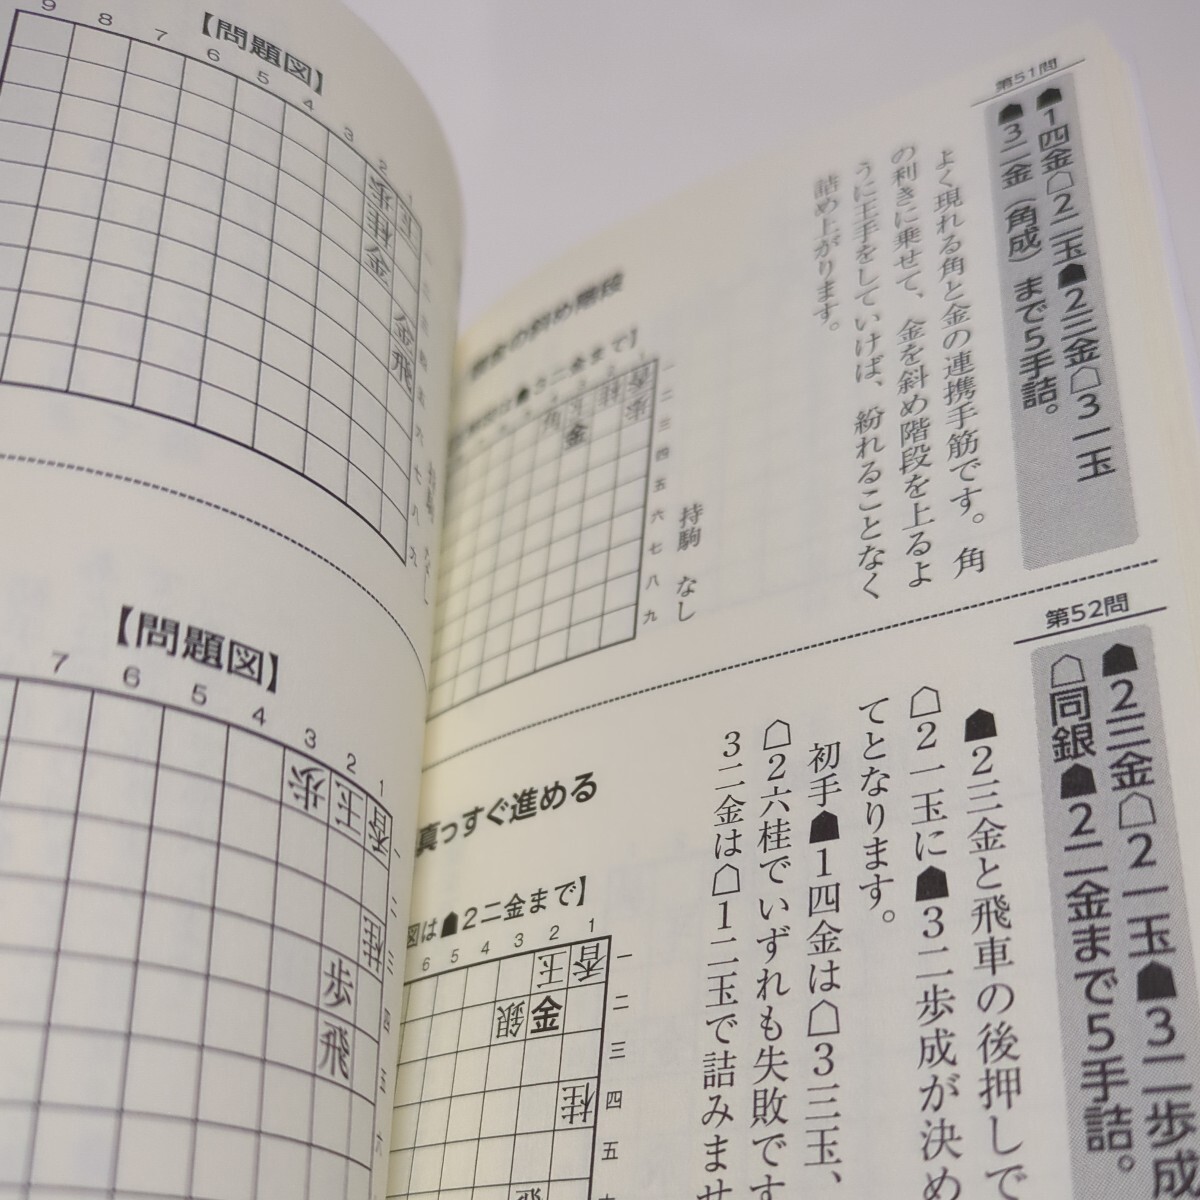 第51問
☗1四金☖2二玉☗2三金☖3一玉
☗3二金（角成）まで5手詰。
よく現れる角と金の連携手筋です。角
の利きに乗せて、金を斜め階段を上るよ
うに王手をしていけば、紛れることなく
詰め上がります。
の斜め階段
☗3二金まで】
持駒 なし
一
二
三
四
五
六
七
八
九
第52問
☗2三金☖2一玉☗3二歩成
☖同銀☗2二金まで5手詰。
☗2三金と飛車の後押しで
☖2一玉に☗3二歩成が決め
てとなります。
初手☗1四金は☖3三玉、
☖2六桂でいずれも失敗です
3二金は☖1二玉で詰みませ
真っすぐ進める
図は☗2二金まで】
6 5 4 3 2 1
玉 香 一
銀 金 二
三
桂 四
五
飛
【問題図】
9 8 7 6 5 4 3 2 1
歩 玉
桂
金
金
飛
【問題図】
7 6 5 4 3 2 1
歩 玉 香 一
二
桂 三
歩 四
飛 五
六